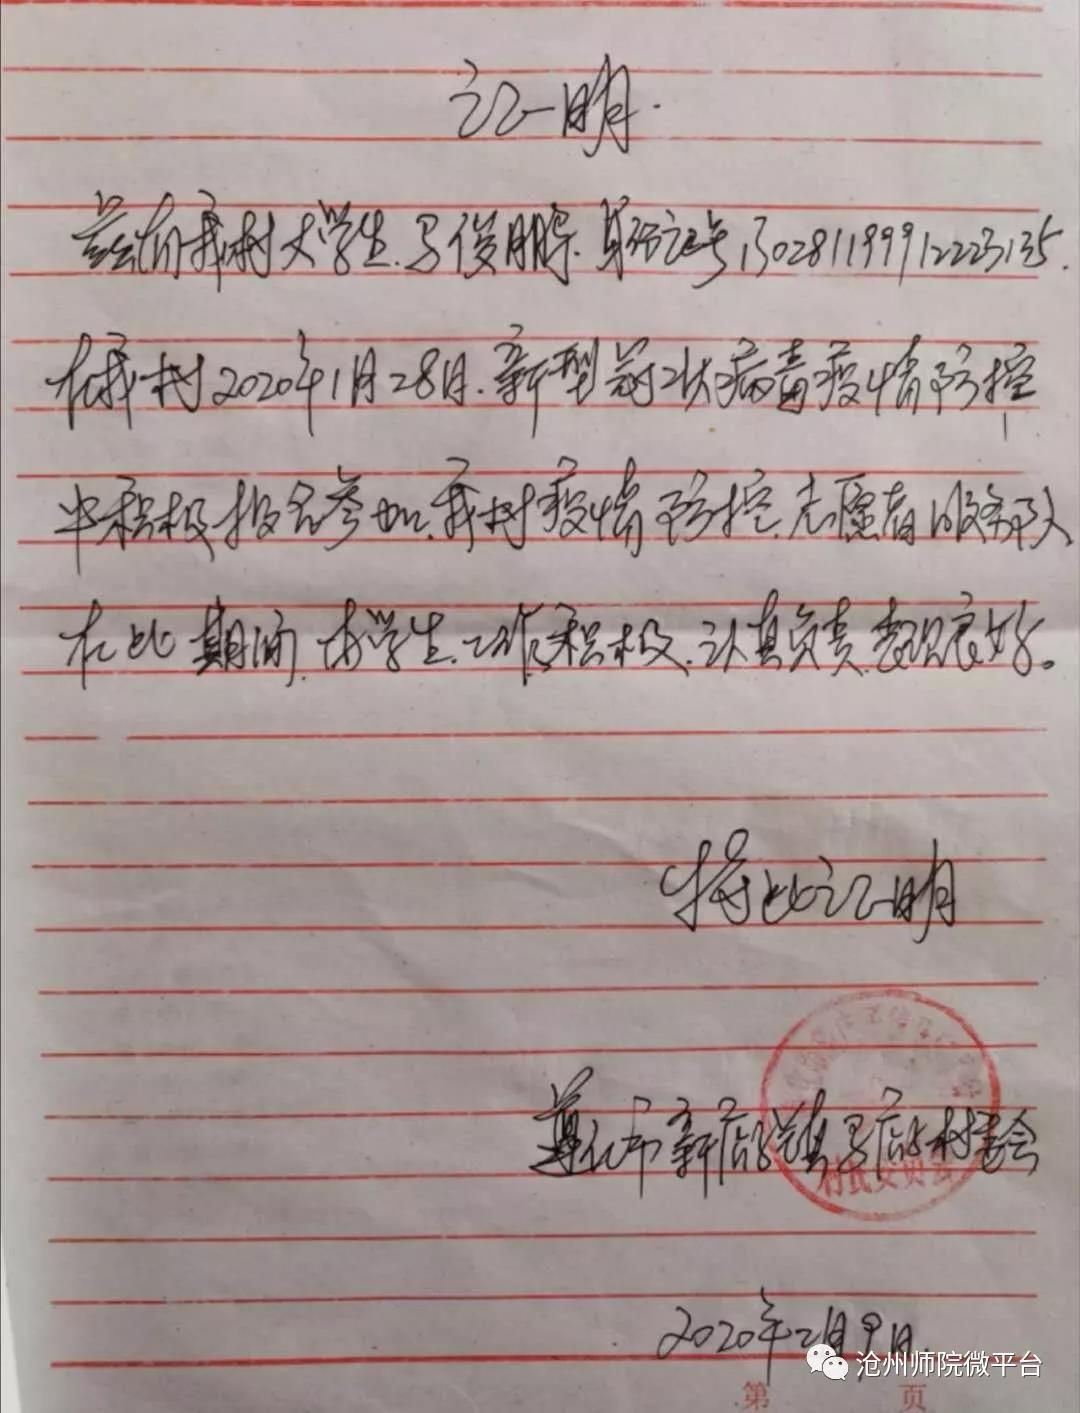 证明.
兹有我村大学生.马俊鹏.身份证号130281199912223135.
在我村2020年1月28日.新型冠状病毒疫情防控
中积极报名参加我村疫情防控志愿者服务队
在此期间.该学生.工作积极.认真负责.表现良好。
特此证明
遵化市新店子镇马店子村委会
村民委员会
2020年2月9日.
沧州师院微平台
第 页